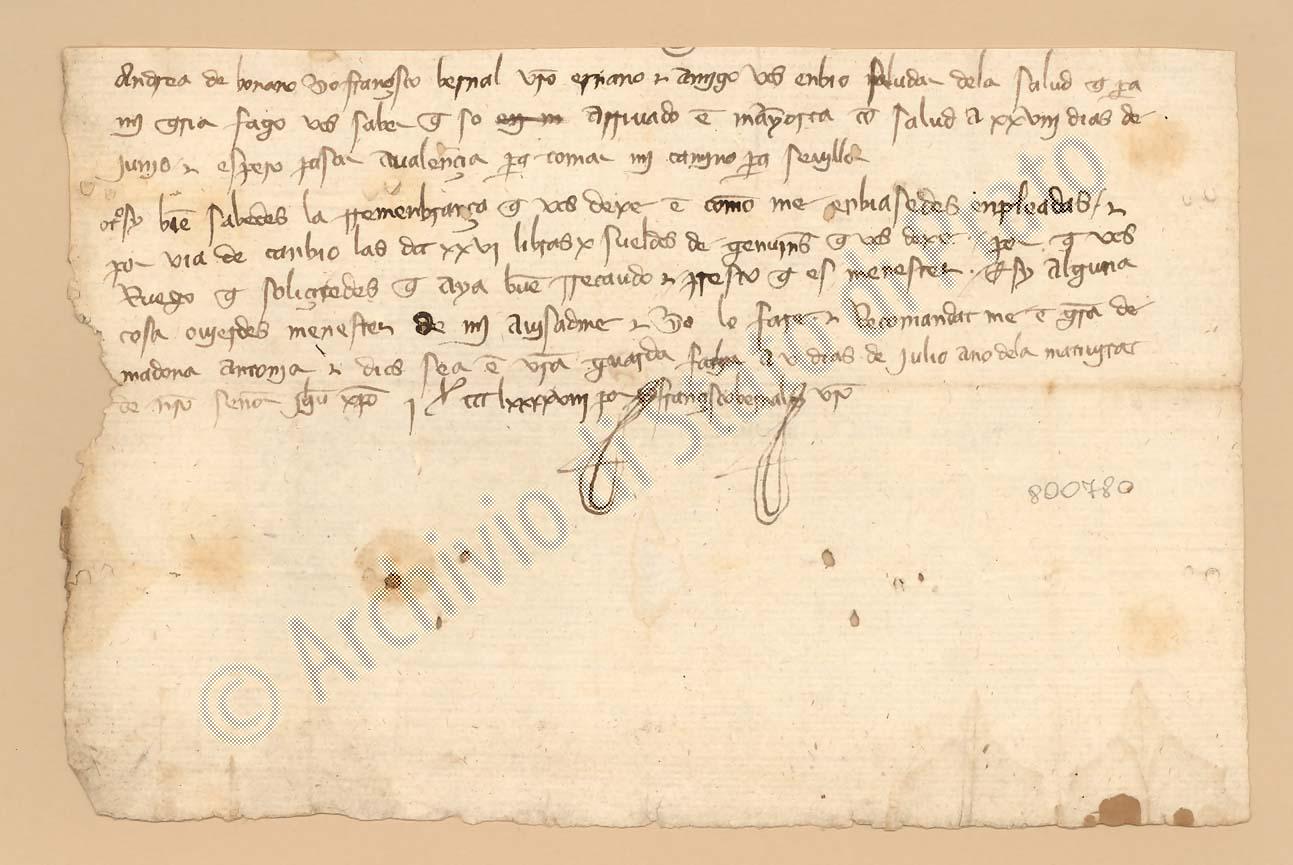 Andrea de bonano yo françisco bernal vrõ ermano τ amigo vos enbio saludar dela salud q̃ pa
mi q̃ria fago vos saber q̃ so arriuado ẽ mayorca cõ salud a xxviii dias de
junjo τ espero pasar aualençia pa tomar mi camino pa seuilla
otºsy biẽ sabedes la rremenbrança q̃ vos dexe ẽ como me enbiasedes enpleadas τ
por via de canbio las dct xxvi libras x sueldos de genuins q̃ vos dexe por q̃ vos
Ruego q̃ soliçitedes q̃ aya buẽ rrecaudo τ presto q̃ es menester. E sy alguna
cosa ovierdes menester de mi auisadme τ yo lo fare τ Recomandat me ẽ grã de
madona antonia τ dios sea ẽ vrã guarda fecha a v dias de julio ano dela natiujtat
de nrõ señor jhũ xpõ j ccc lxxxxviii por françisco bernal vrõ
800780
© Archivio di Stato di Prato